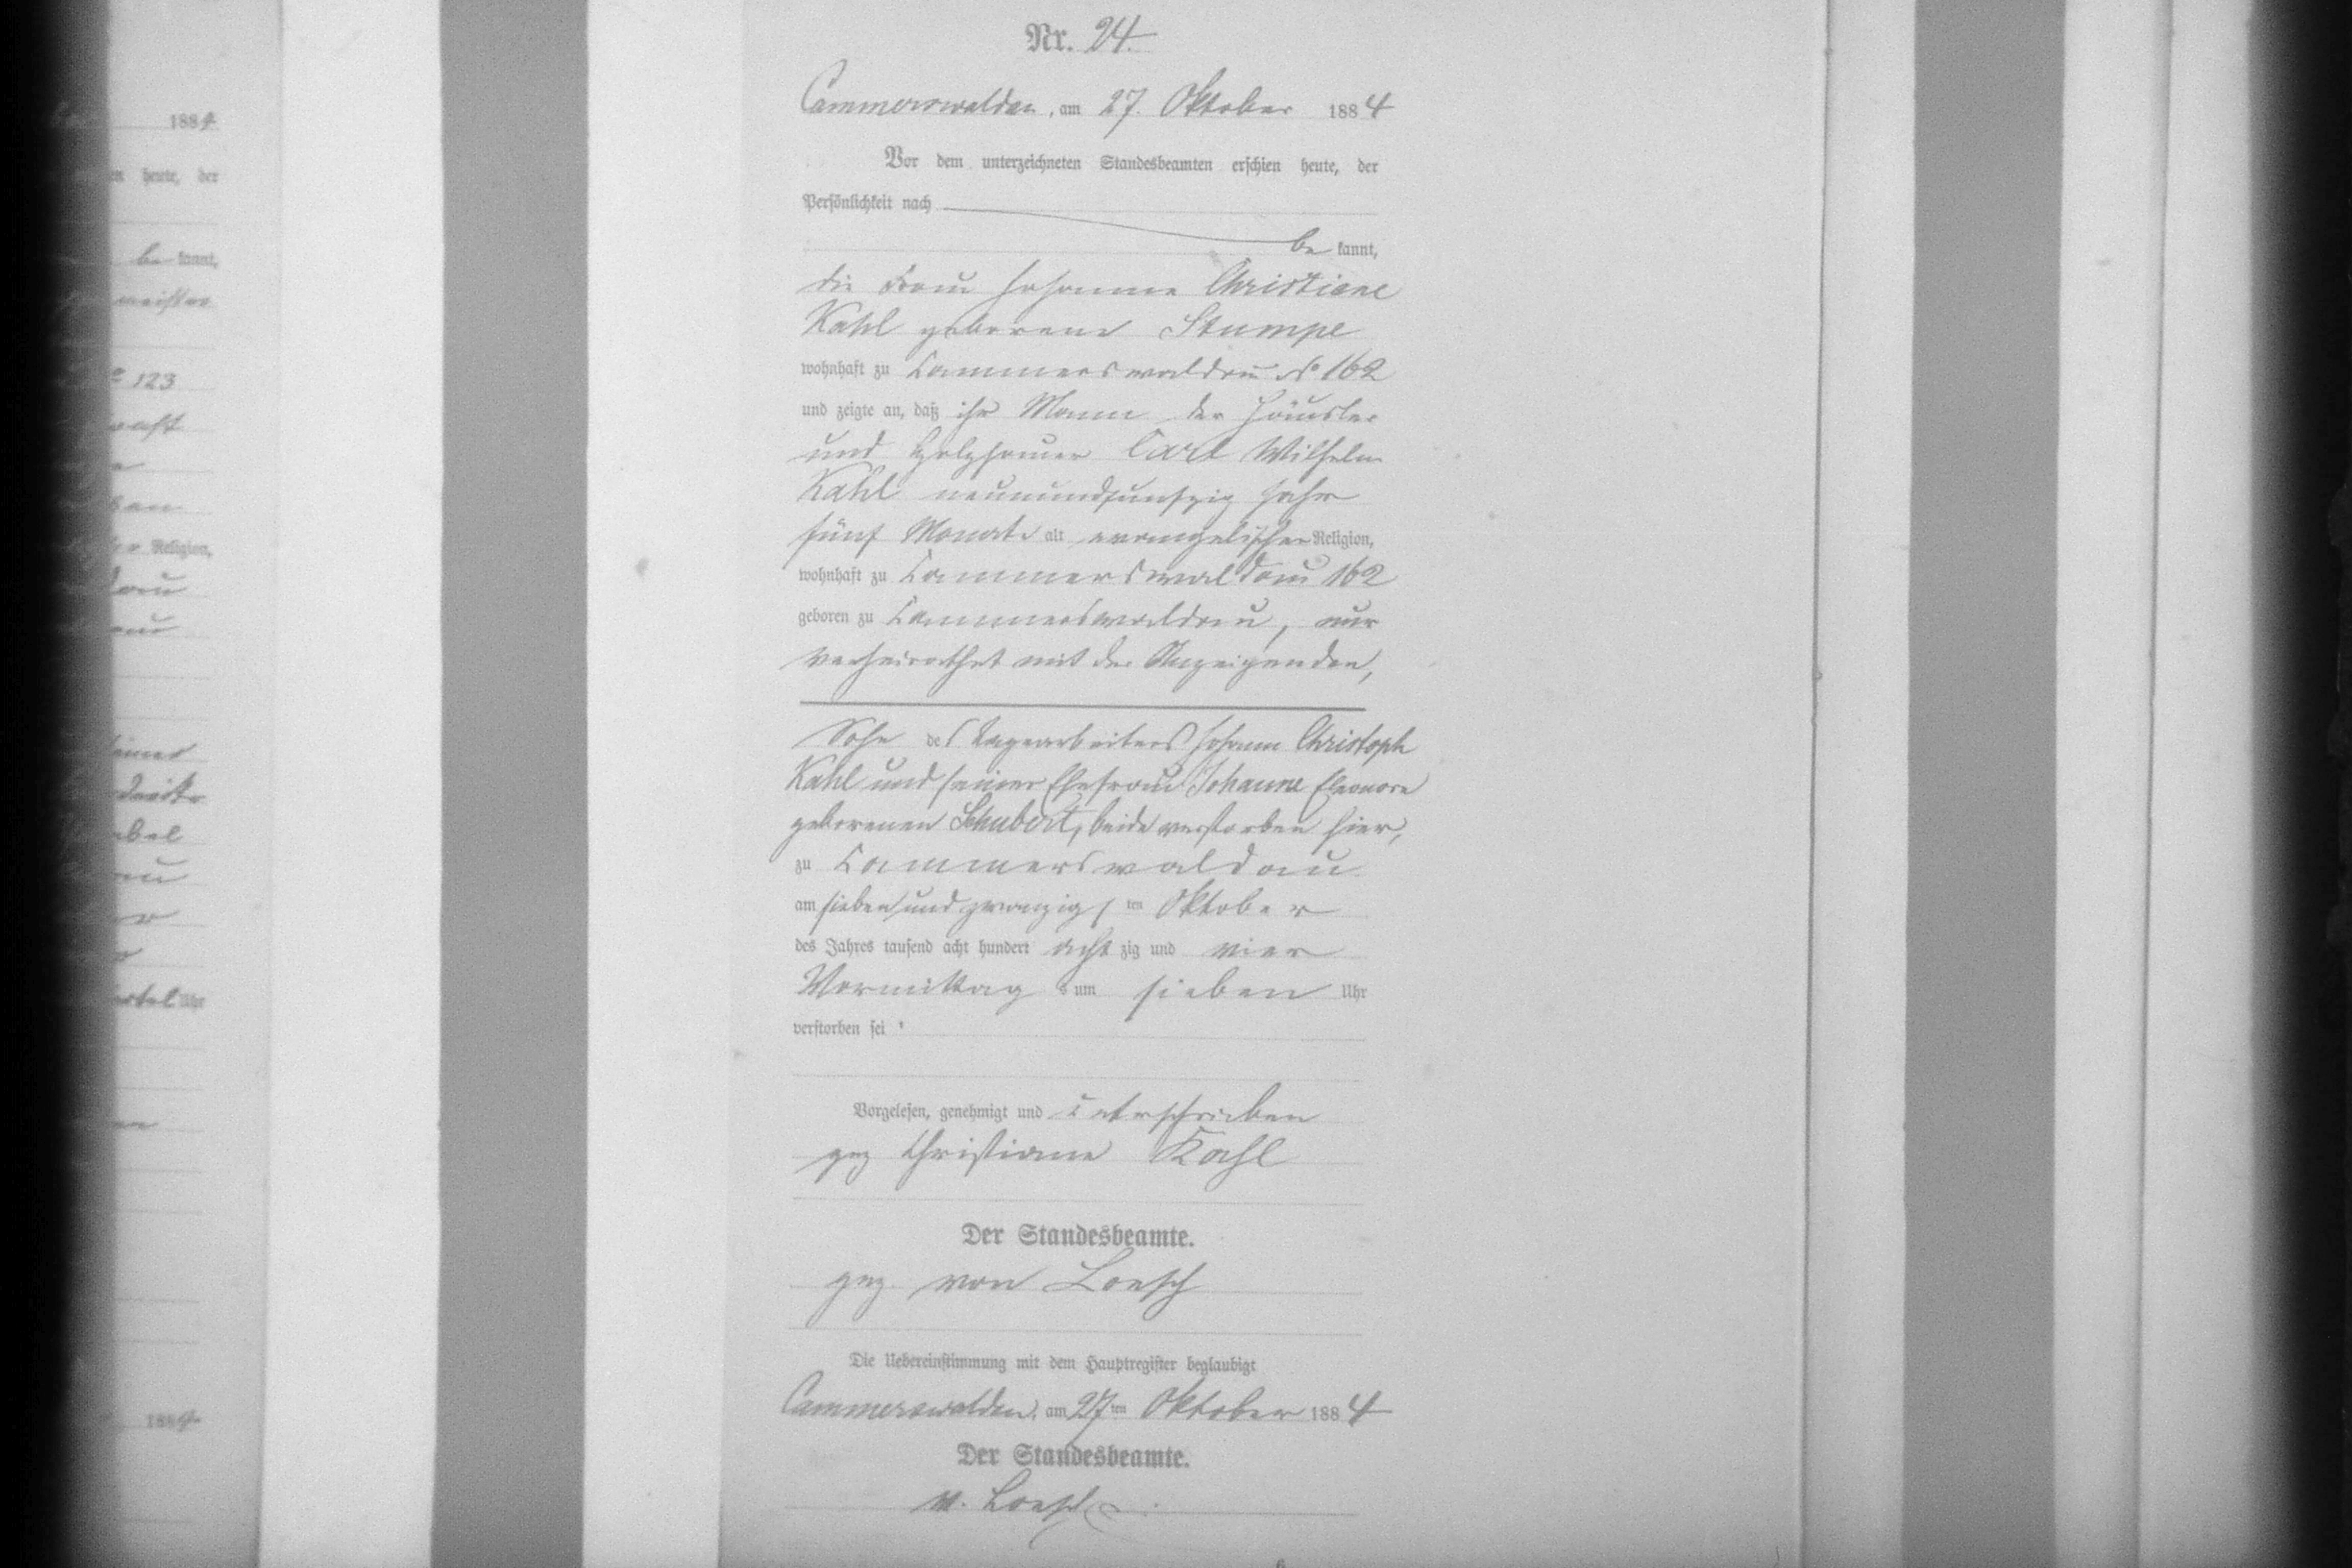 Nr. 24.
Cammerswaldau, am 27. Oktober 1884
Vor dem unterzeichneten Standesbeamten erschien heute, der
Persönlichkeit nach
be kannt,
die Frau Johanne Christiane
Kahl geborene Stumpe
wohnhaft zu Cammerswaldau No 162
und zeigte an, daß ihr Mann der Häusler
und Holzhauer Carl Wilhelm
Kahl neunundfunfzig Jahr
fünf Monate alt evangelischer Religion,
wohnhaft zu Cammerswaldau 162
geboren zu Cammerswaldau,
verheirathet mit der Anzeigenden,
Sohn des Tagearbeiters Johann Christoph
Kahl und seiner Ehefrau Johanne Eleonore
geborenen Schubert, beide verstorben hier,
zu Cammerswaldau
am sieben und zwanzigsten Oktober
des Jahres tausend acht hundert achtzig und vier
Vormittags um sieben Uhr
verstorben sei
Vorgelesen, genehmigt und unterschrieben
gez Christiane Kahl
Der Standesbeamte.
gez. von Loesch
Die Uebereinstimmung mit dem Hauptregister beglaubigt
Cammerswaldau, am 27ten Oktober 1884
Der Standesbeamte.
v. Loesch
1884
heute, der
be kannt,
meister
123
Religion,
Uhr
188